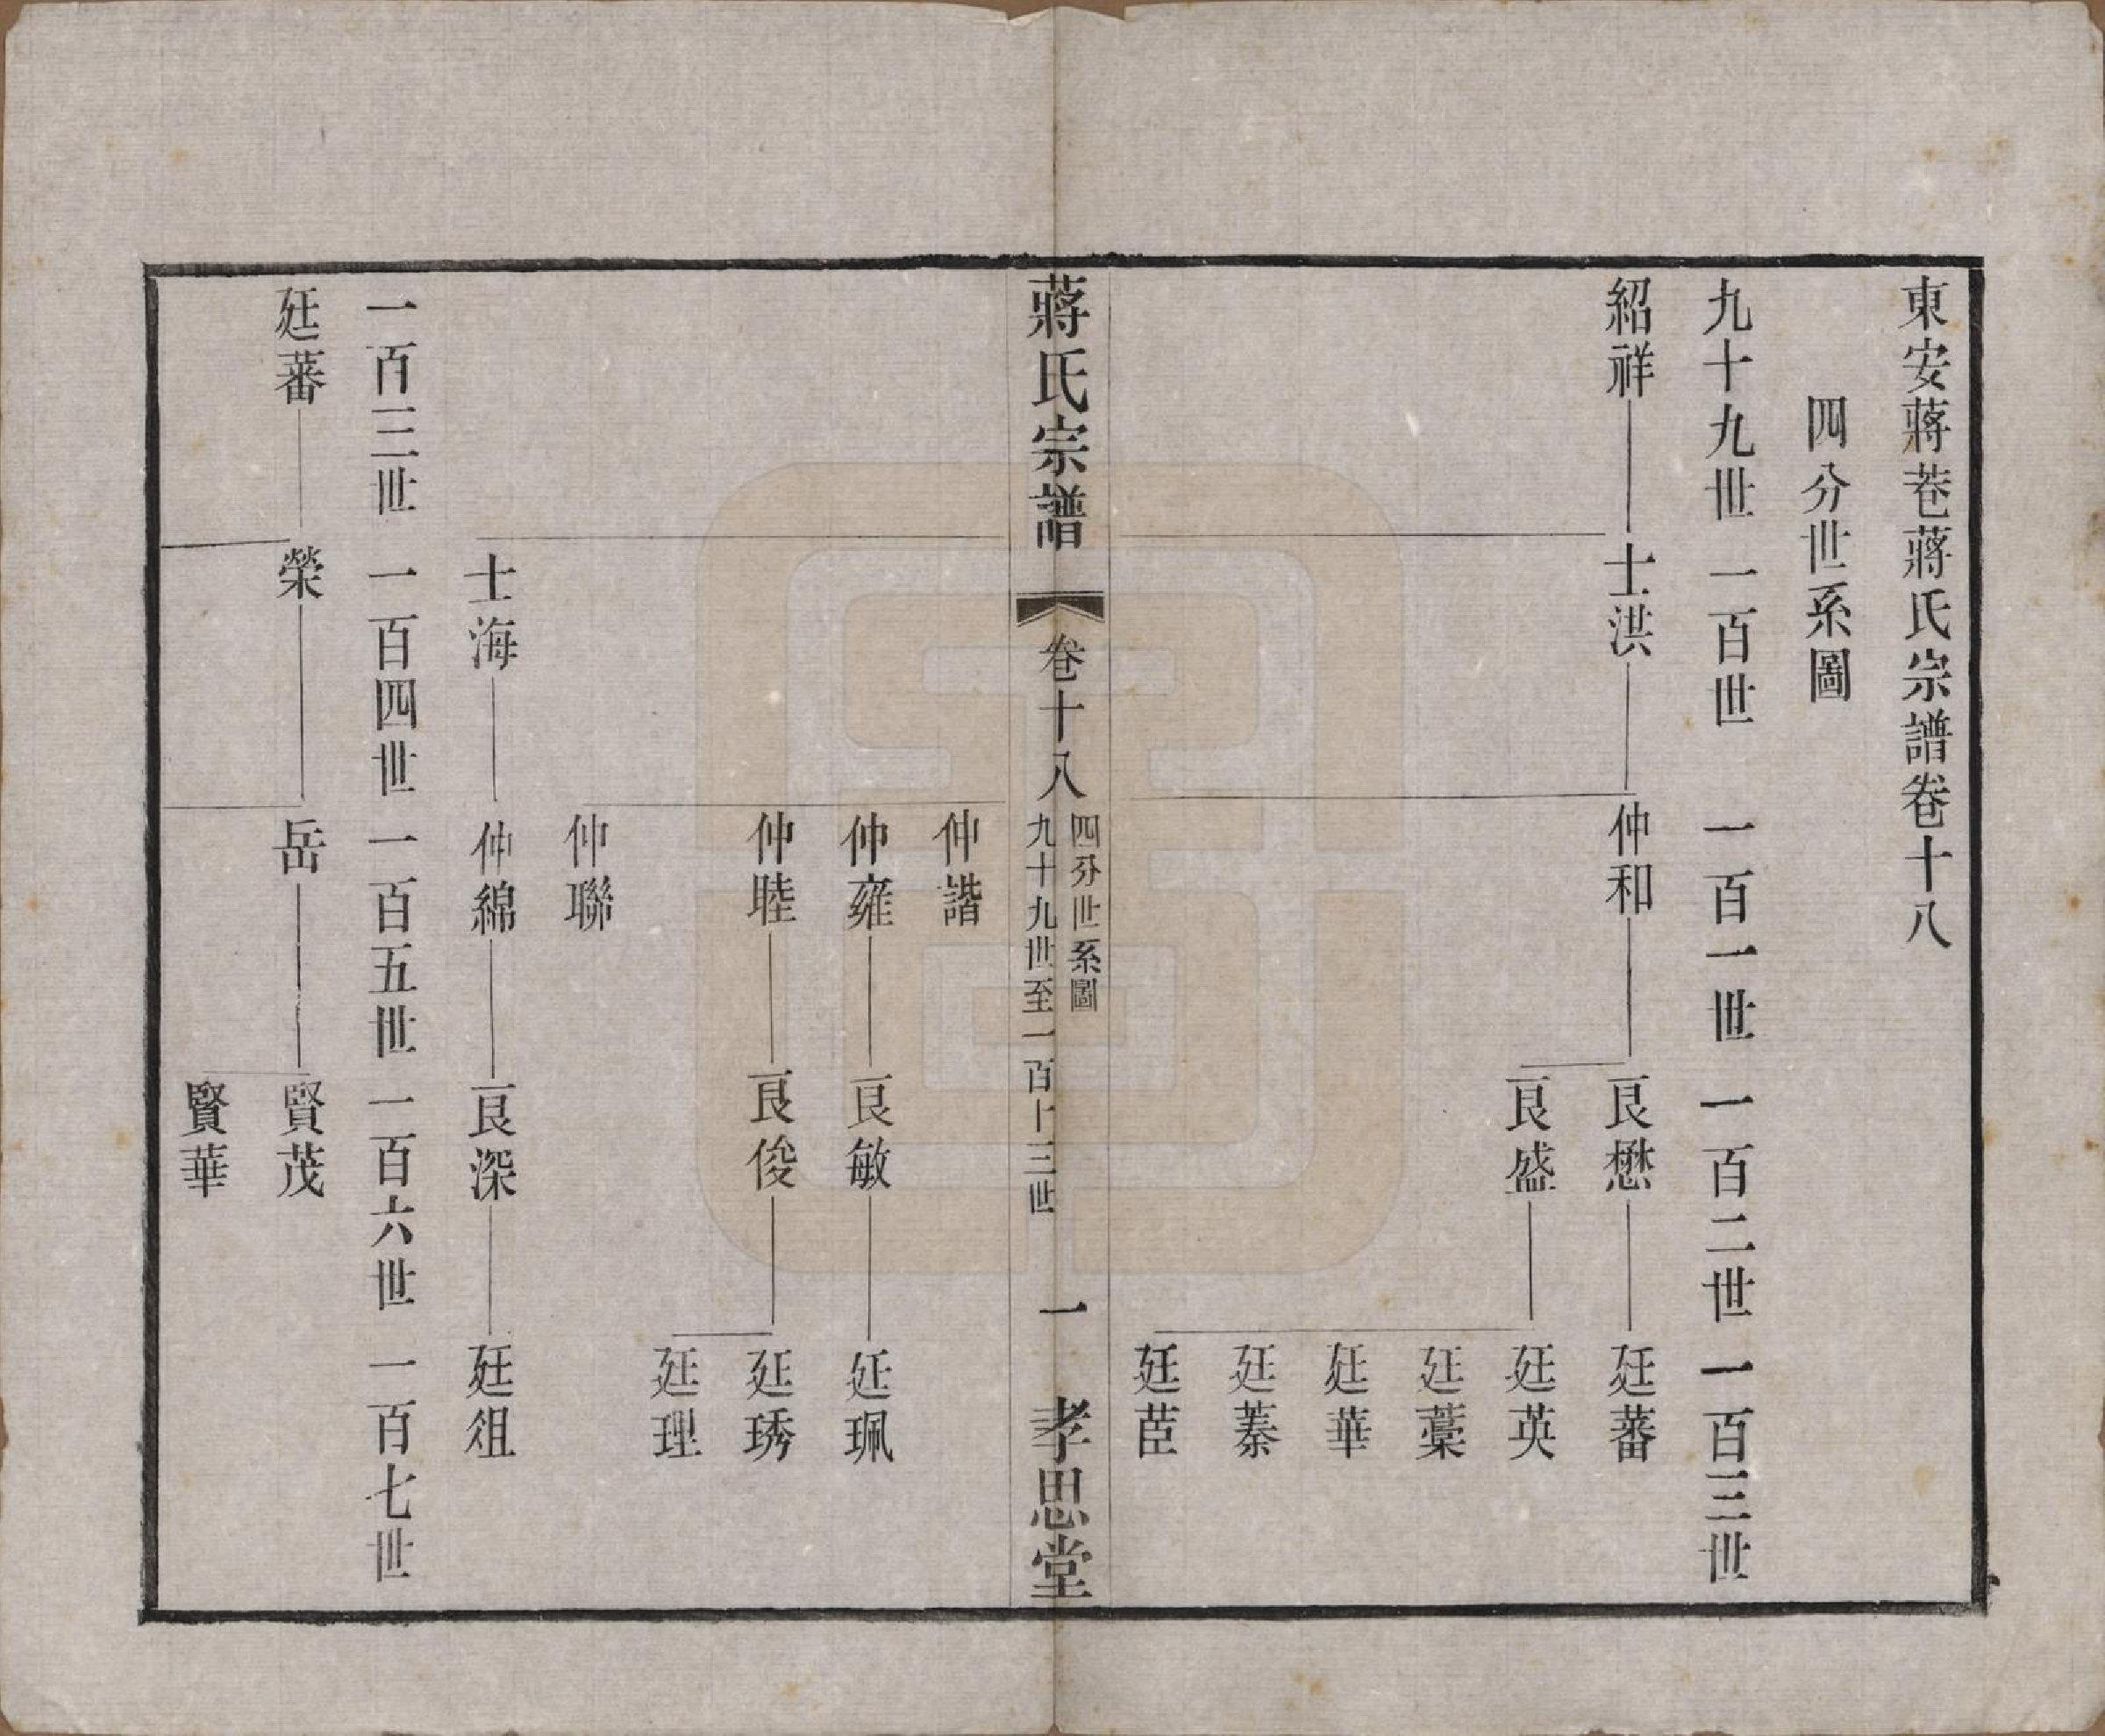 東安蔣巷蔣氏宗譜卷十八
四分世系圖
九十九世 一百世 一百一世 一百二世 一百三世
紹祥 士洪 仲和 良懋 廷蕃
良盛 廷英
廷藁
廷華
廷蓁
廷茝
蔣氏宗譜 卷十八 四分世系圖 九十九世至一百十三世 一 孝思堂
仲諧
仲雍 良敏 廷珮
仲睦 良俊 廷琇
廷理
仲聯
士海 仲綿 良深 廷徂
一百三世 一百四世 一百五世 一百六世 一百七世
廷蕃 榮 岳 賢茂
賢華